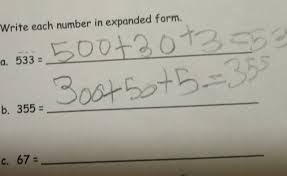 Write each number in expanded form.
a. 533 = 500+30+3=53
b. 355 = 300+50+5=355
c. 67 =